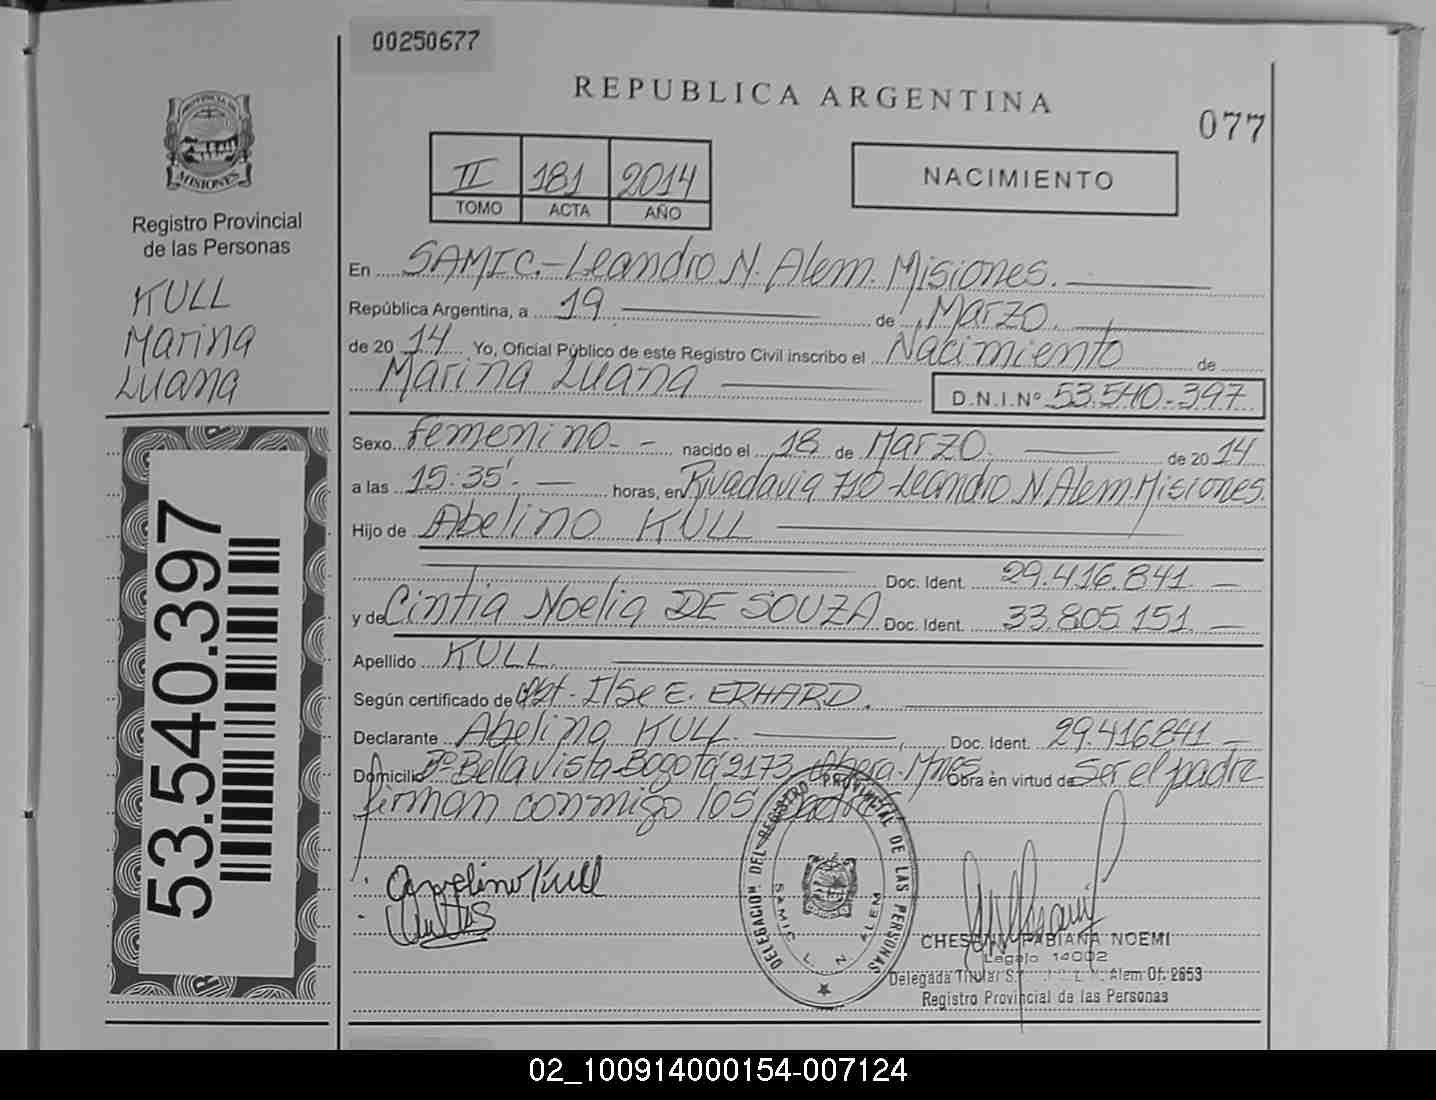 00250677
REPUBLICA ARGENTINA
077
PROVINCIA DE
MISIONES
Registro Provincial
de las Personas
KULL
Marina
Luana
II 181 2014
TOMO ACTA AÑO
NACIMIENTO
En SAMIC.-Leandro N. Alem. Misiones.
República Argentina, a 19 de Marzo.
de 20 14 Yo, Oficial Público de este Registro Civil inscribo el Nacimiento de
Marina Luana D.N.I.Nº 53.540.397
Sexo femenino. - nacido el 18 de Marzo. de 20 14
a las 15:35'. - horas, en Rivadavia 710-Leandro N Alem.Misiones.
Hijo de Abelino KULL
Doc. Ident. 29.416.841. -
y de Cintia Noelia DE SOUZA Doc. Ident. 33.805.151. -
Apellido KULL.
Según certificado de Obt. Ilse E. ERHARD.
Declarante Abelino KULL. Doc. Ident. 29.416841 -
Domicilio Bº Bella Vista Bogotá 2173 Obera-Mnes Obra en virtud de Ser el padre
firman conmigo los padres
53.540.397
Kull
DELEGACION DEL REGISTRO PROVINCIAL DE LAS PERSONAS
SAMIC L. N. ALEM
FABIANA NOEMI
Legajo 14002
Delegada Titular Alem Of. 2653
Registro Provincial de las Personas
02_100914000154-007124